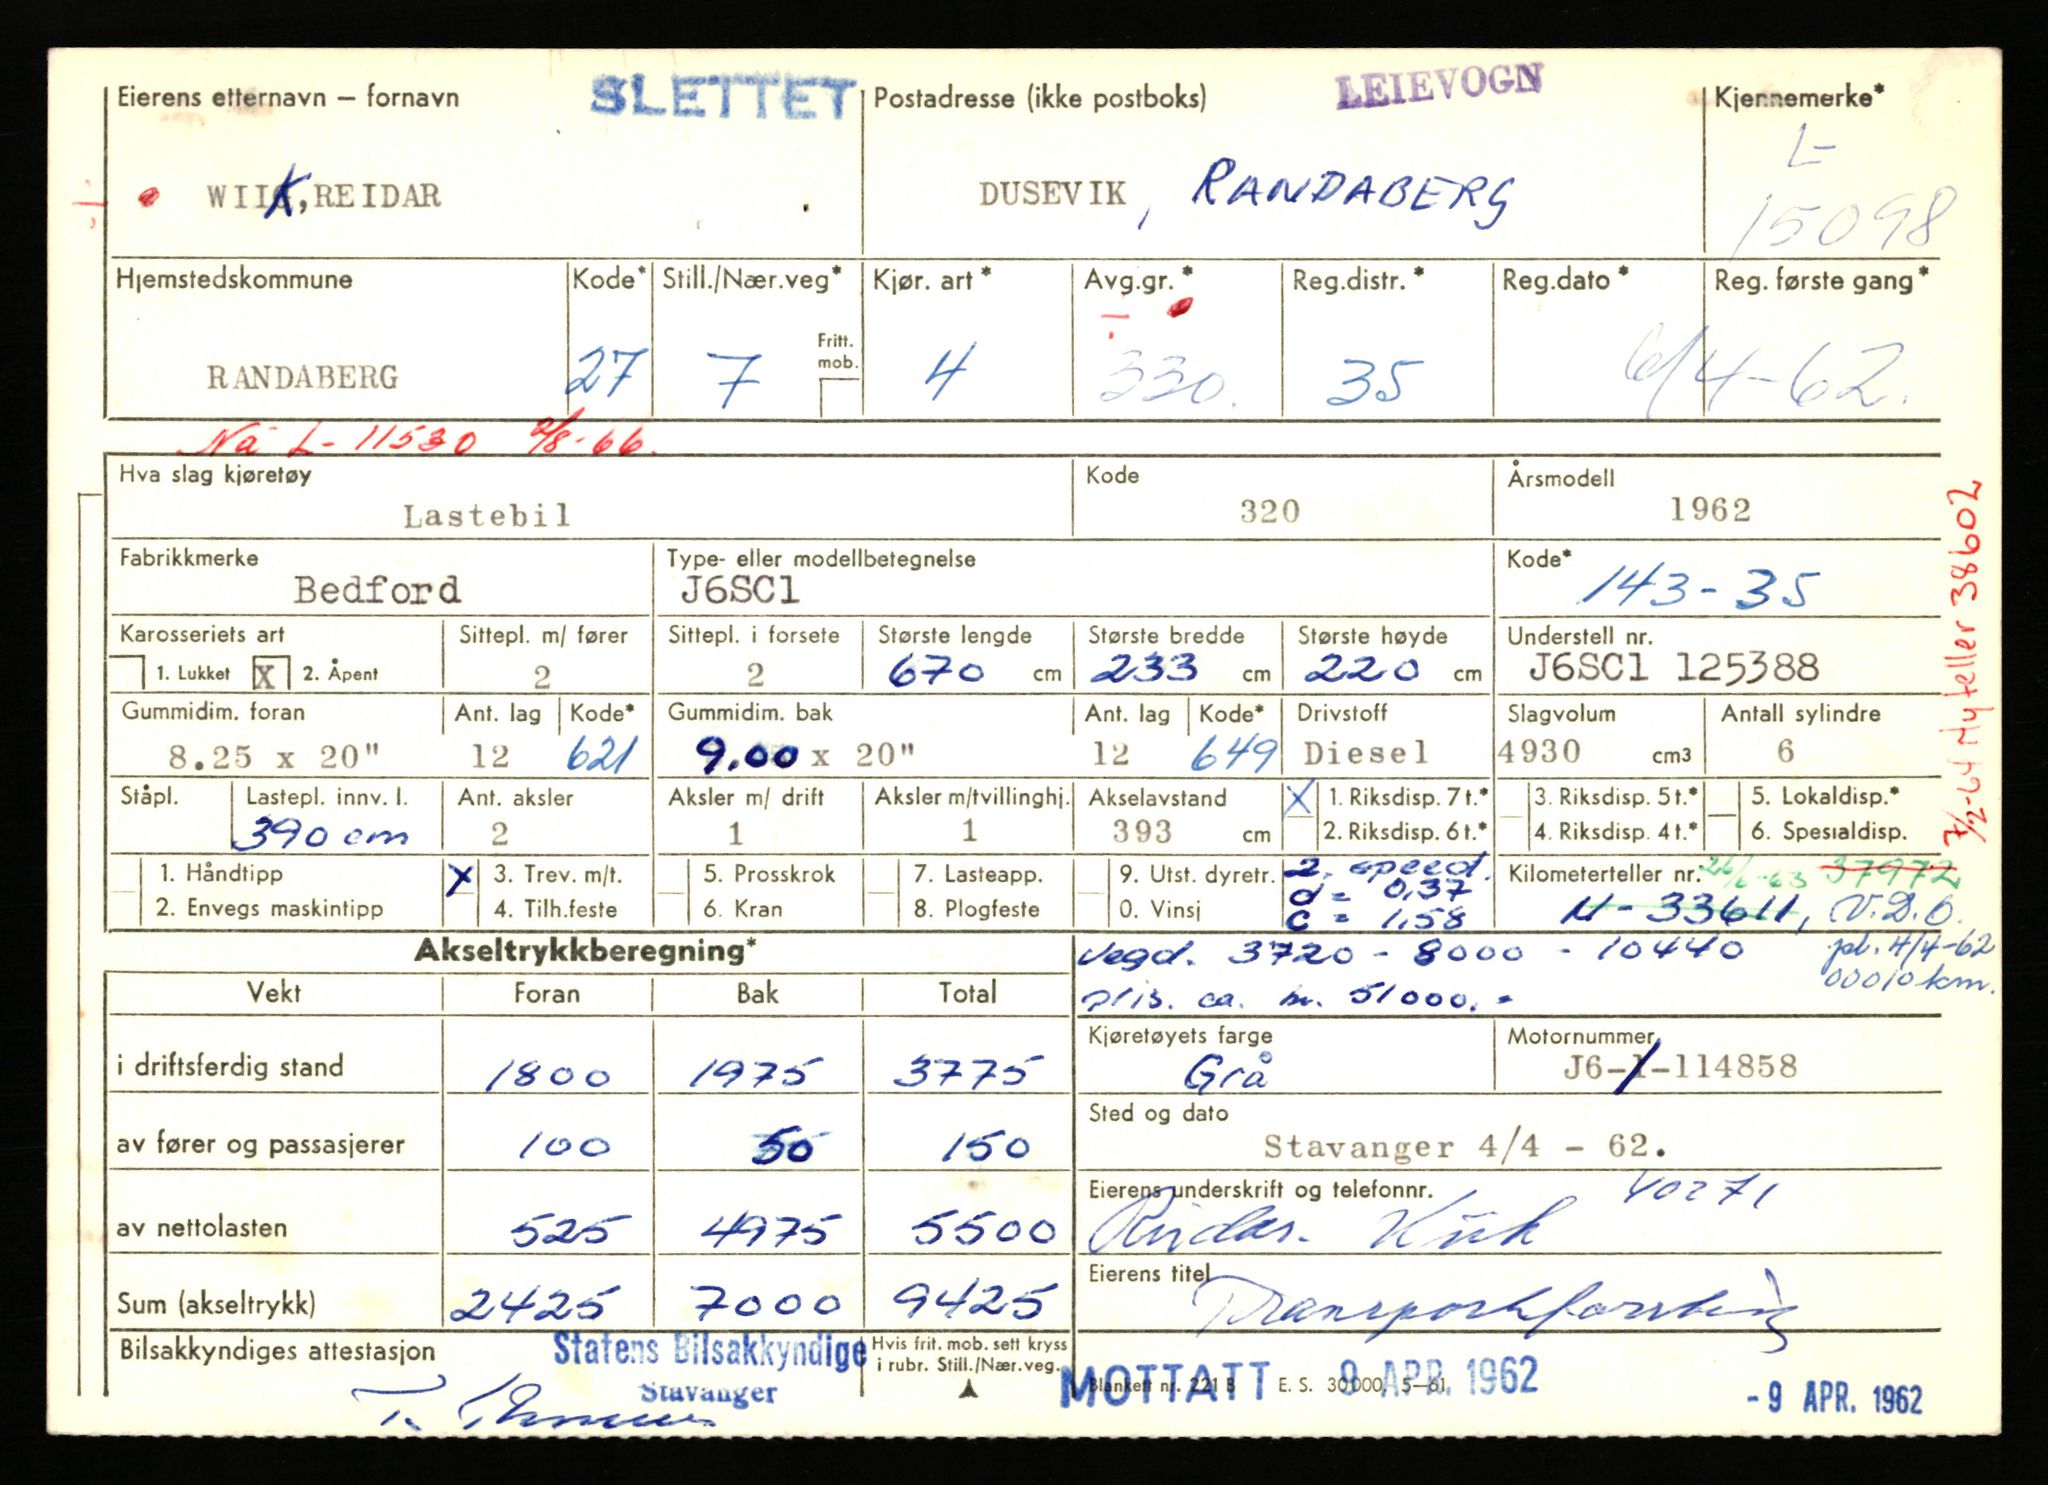 Eierens etternavn – fornavn SLETTET Postadresse (ikke postboks) LEIEVOGN Kjennemerke*
WIIK, REIDAR DUSEVIK, RANDABERG L-
15098
Hjemstedskommune Kode* Still./Nær.veg* Kjør. art* Avg.gr.* Reg.distr.* Reg.dato* Reg. første gang*
Fritt. mob.
RANDABERG 27 7 4 330. 35 6/4-62.
Nå L-11530 2/8-66.
Hva slag kjøretøy Kode Årsmodell
Lastebil 320 1962
Fabrikkmerke Type- eller modellbetegnelse Kode*
Bedford J6SC1 143-35
Karosseriets art Sittepl. m/ fører Sittepl. i forsete Største lengde Største bredde Største høyde Understell nr.
1. Lukket X 2. Åpent 2 2 670 cm 233 cm 220 cm J6SC1 125388
Gummidim. foran Ant. lag Kode* Gummidim. bak Ant. lag Kode* Drivstoff Slagvolum Antall sylindre
8.25 x 20" 12 621 9.00 x 20" 12 649 Diesel 4930 cm3 6
Ståpl. Lastepl. innv. l. Ant. aksler Aksler m/ drift Aksler m/tvillinghj. Akselavstand X 1. Riksdisp. 7 t.* 3. Riksdisp. 5 t.* 5. Lokaldisp.*
390 cm 2 1 1 393 cm 2. Riksdisp. 6 t.* 4. Riksdisp. 4 t.* 6. Spesialdisp.
1. Håndtipp X 3. Trev. m/t. 5. Prosskrok 7. Lasteapp. 9. Utst. dyretr. 2. speed. Kilometerteller nr. 26/6-63 37972
2. Envegs maskintipp 4. Tilh.feste 6. Kran 8. Plogfeste 0. Vinsj d = 0,37
c = 1,58 N-33611, V.D.O.
7/2-64 Ny teller 38602
Akseltrykkberegning* Vegd. 3720 - 8000 - 10440 pl. 4/4-62
00010 km.
Vekt Foran Bak Total pris. ca. kr. 51000.-
Kjøretøyets farge Motornummer
i driftsferdig stand 1800 1975 3775 Grå J6-1-114858
Sted og dato
av fører og passasjerer 100 50 150 Stavanger 4/4 - 62.
Eierens underskrift og telefonnr. 40271
av nettolasten 525 4975 5500 Reidar Wiik
Eierens titel
Sum (akseltrykk) 2425 7000 9425
Bilsakkyndiges attestasjon Statens Bilsakkyndige Hvis frit. mob. sett kryss
i rubr. Still./Nær.veg.
Stavanger MOTTATT 9 APR. 1962
Blankett nr. 221 B E. S. 30000, 5–61. - 9 APR. 1962